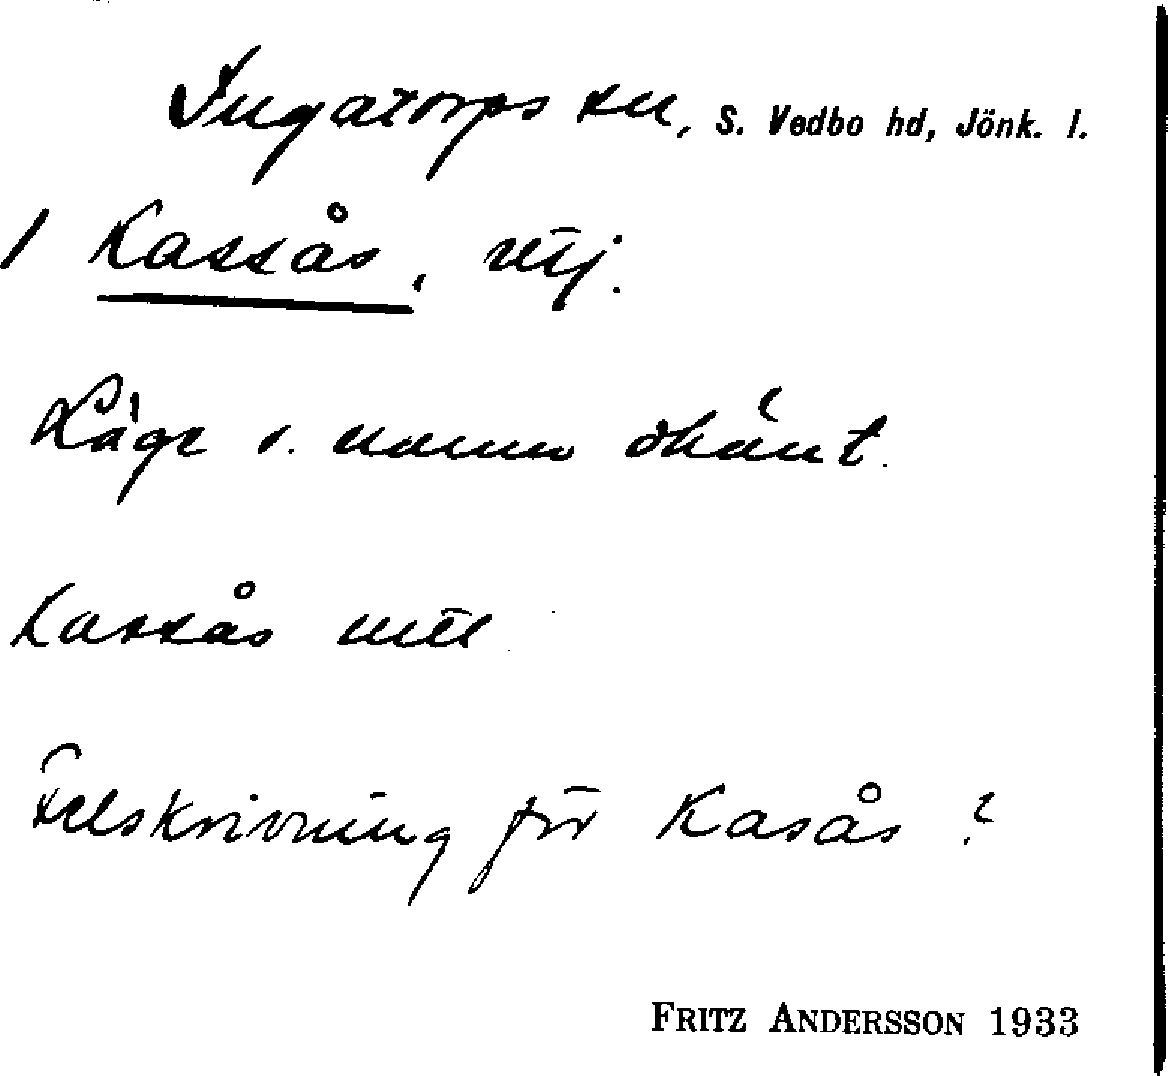 Ingatorps sn, S. Vedbo hd, Jönk. l.
1 Kassås, utj.
Läge o. namn okänt.
Kassås
Felskrivning för Kasås?
FRITZ ANDERSSON 1933